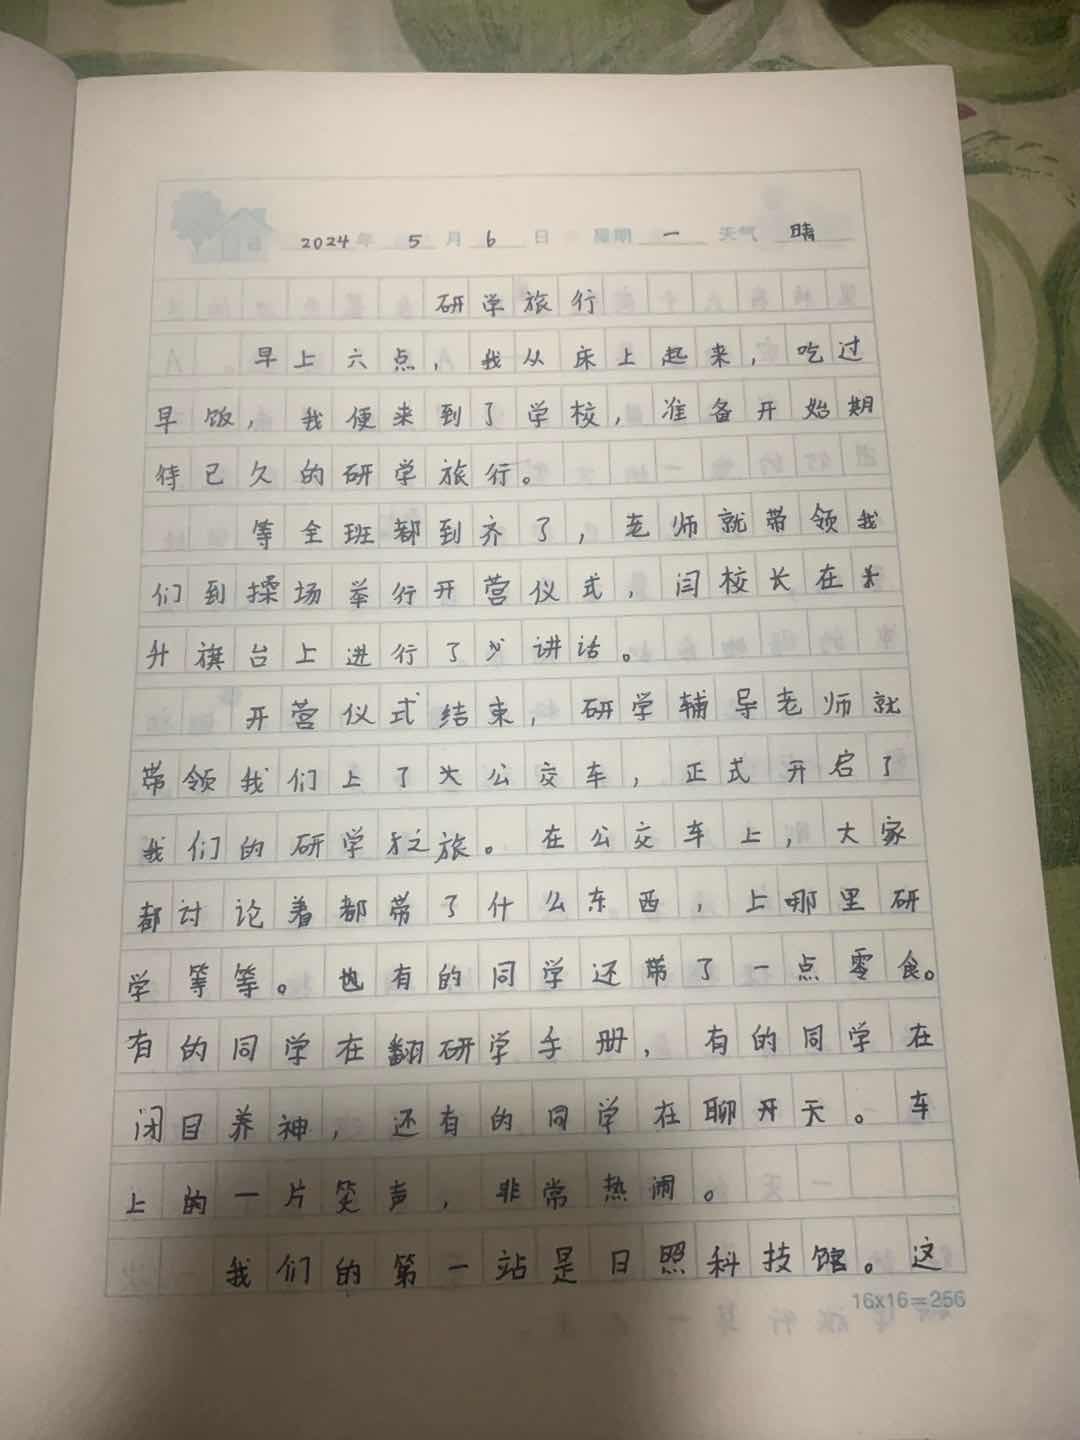 2024年 5月 6日 星期一 天气 晴
研学旅行
早上六点，我从床上起来，吃过
早饭，我便来到了学校，准备开始期
待已久的研学旅行。
等全班都到齐了，老师就带领我
们到操场举行开营仪式，闫校长在
升旗台上进行了讲话。
开营仪式结束，研学辅导老师就
带领我们上了大公交车，正式开启了
我们的研学之旅。在公交车上，大家
都讨论着都带了什么东西，上哪里研
学等等。也有的同学还带了一点零食。
有的同学在翻研学手册，有的同学在
闭目养神，还有的同学在聊开天。车
上的一片笑声，非常热闹。
我们的第一站是日照科技馆。这
16x16=256